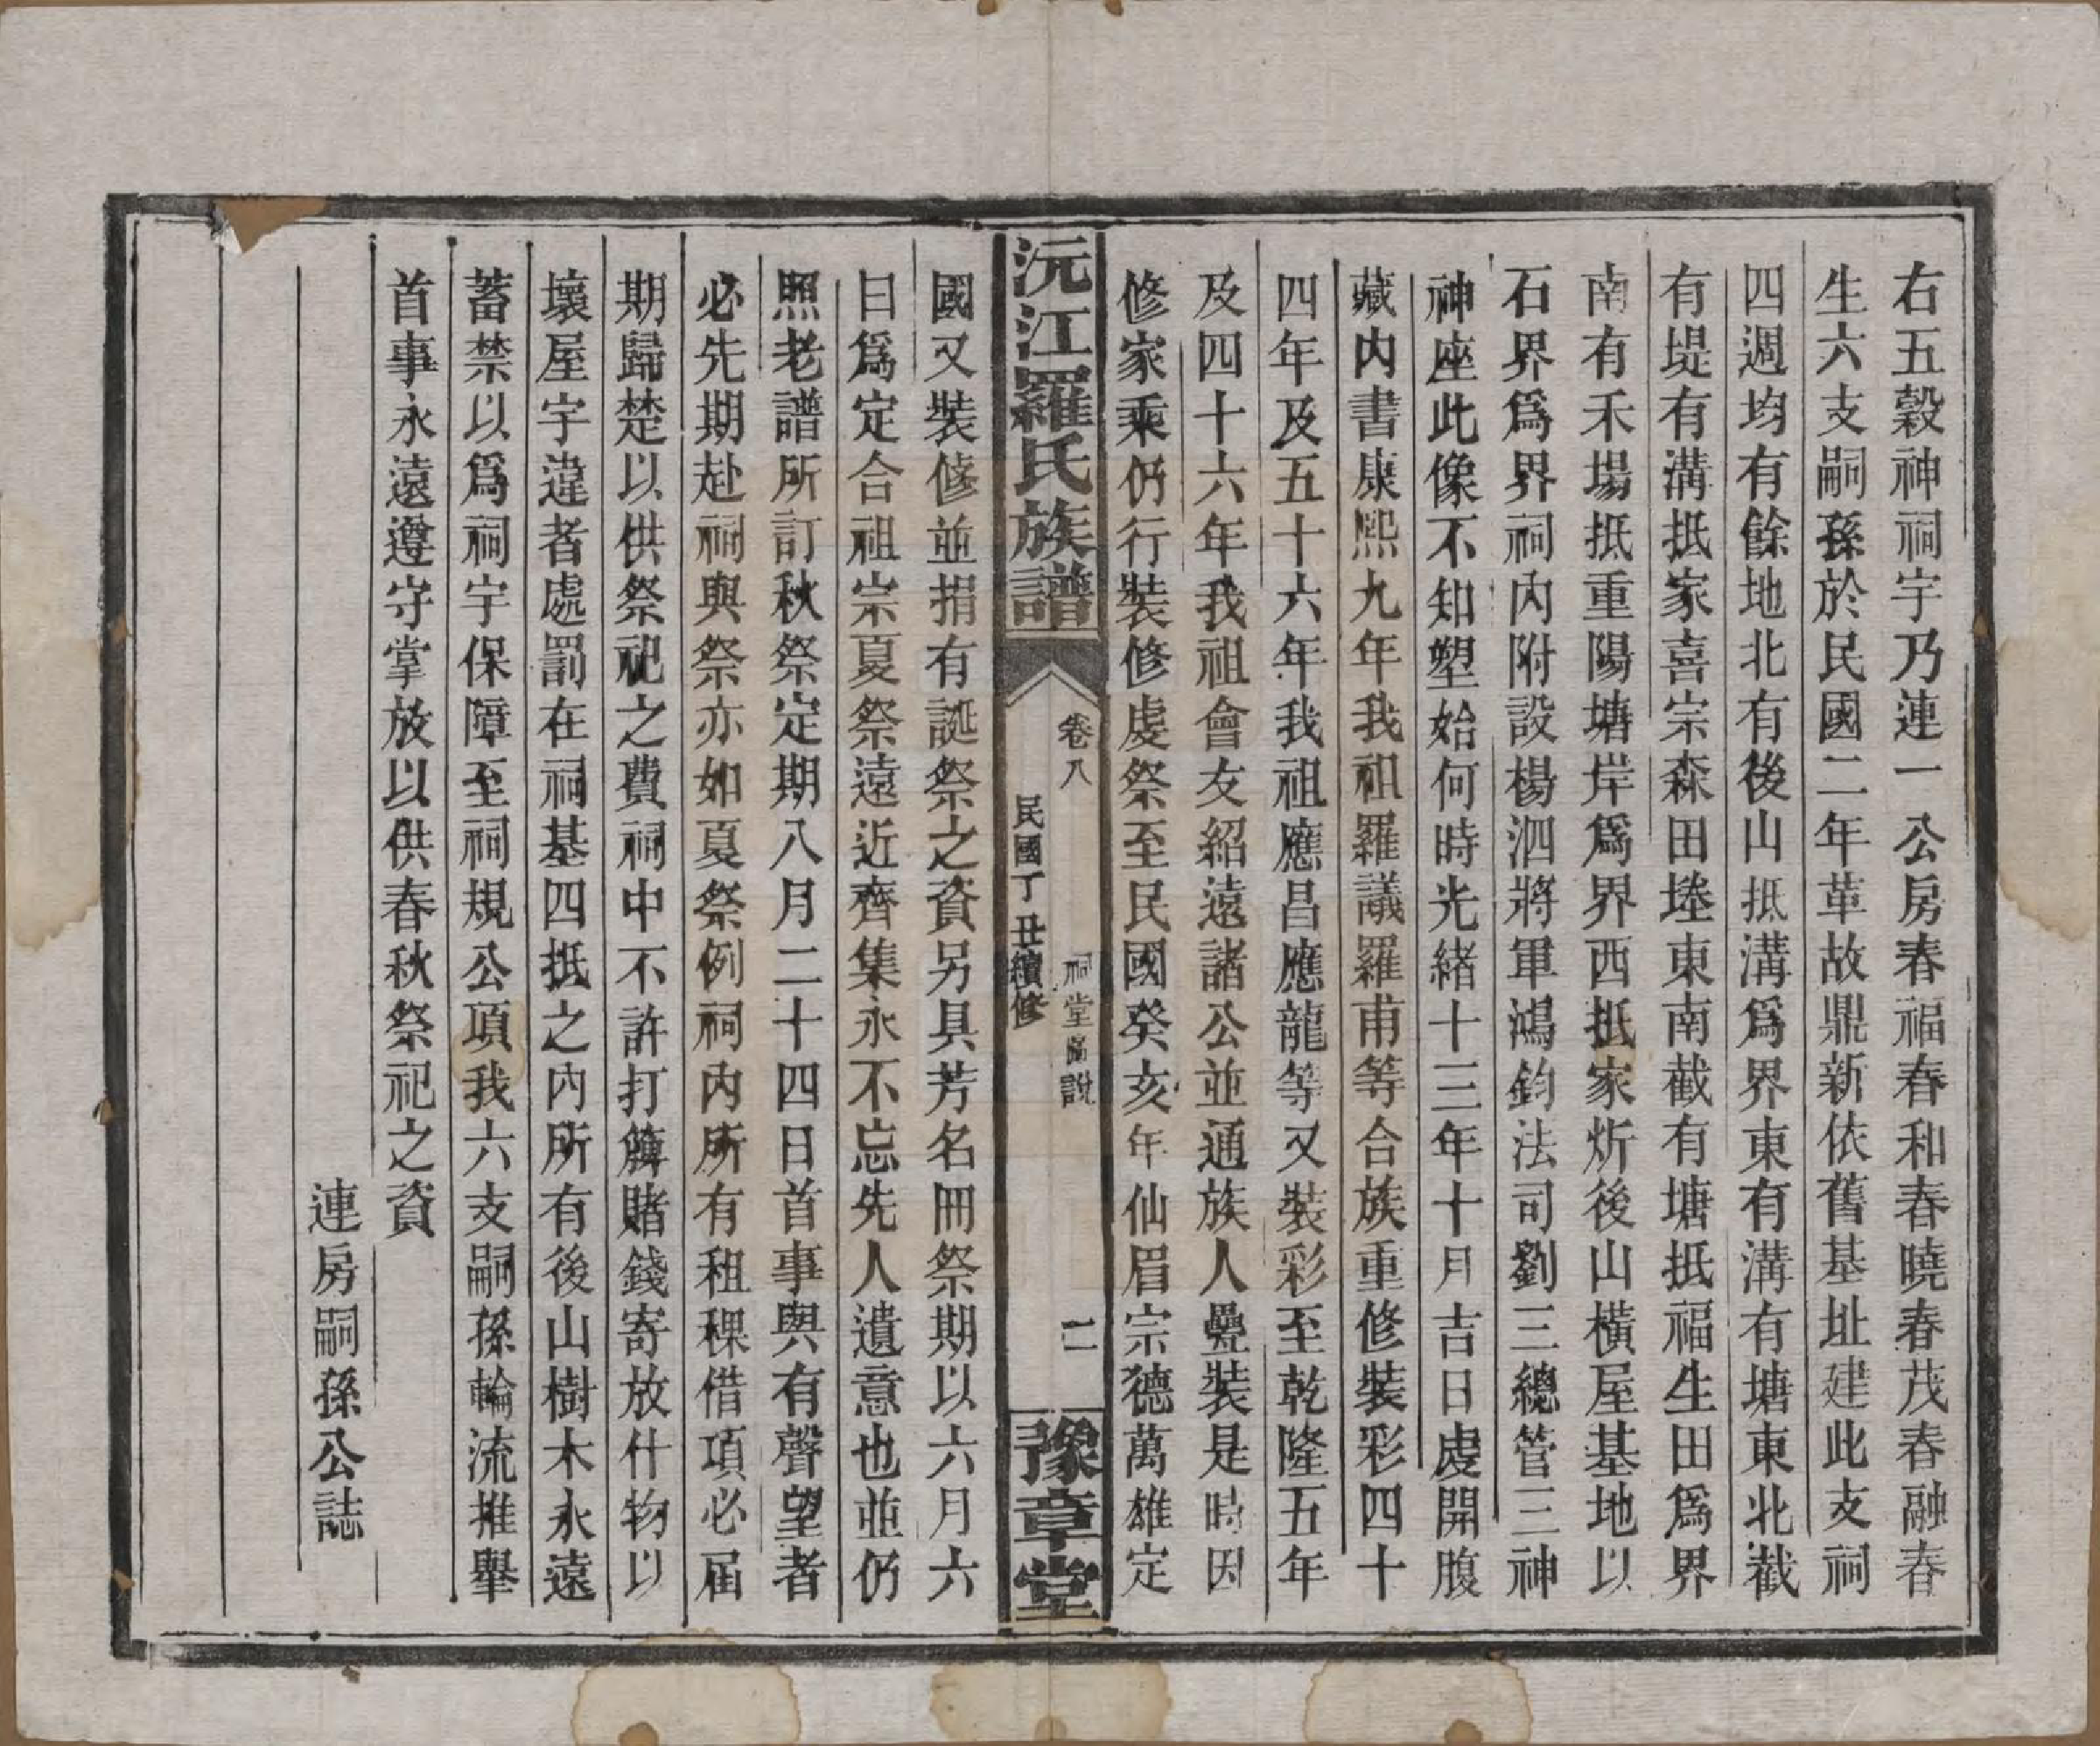 右五穀神祠宇乃連一公房春福春和春曉春茂春融春
生六支嗣孫於民國二年革故鼎新依舊基址建此支祠
四週均有餘地北有後山抵溝為界東有溝有塘東北截
有堤有溝抵家喜宗森田墘東南截有塘抵福生田為界
南有禾場抵重陽塘岸為界西抵家炘後山橫屋基地以
石界為界祠內附設楊泗將軍鴻鈞法司劉三總管三神
神座此像不知塑始何時光緒十三年十月吉日虔開腹
藏內書康熙九年我祖羅議羅甫等合族重修裝彩四十
四年及五十六年我祖應昌應龍等又裝彩至乾隆五年
及四十六年我祖會友紹遠諸公並通族人疊裝是時因
修家乘仍行裝修虔祭至民國癸亥年仙眉宗德萬雄定
沅江羅氏族譜
卷八
祠堂圖說
二
民國丁丑續修
豫章堂
國又裝修並捐有誕祭之資另具芳名冊祭期以六月六
日為定合祖宗夏祭遠近齊集永不忘先人遺意也並仍
照老譜所訂秋祭定期八月二十四日首事與有聲望者
必先期赴祠與祭亦如夏祭例祠內所有租稞借項必屆
期歸楚以供祭祀之費祠中不許打簰賭錢寄放什物以
壞屋宇違者處罰在祠基四抵之內所有後山樹木永遠
蓄禁以為祠宇保障至祠規公項我六支嗣孫輪流推舉
首事永遠遵守掌放以供春秋祭祀之資
連房嗣孫公誌